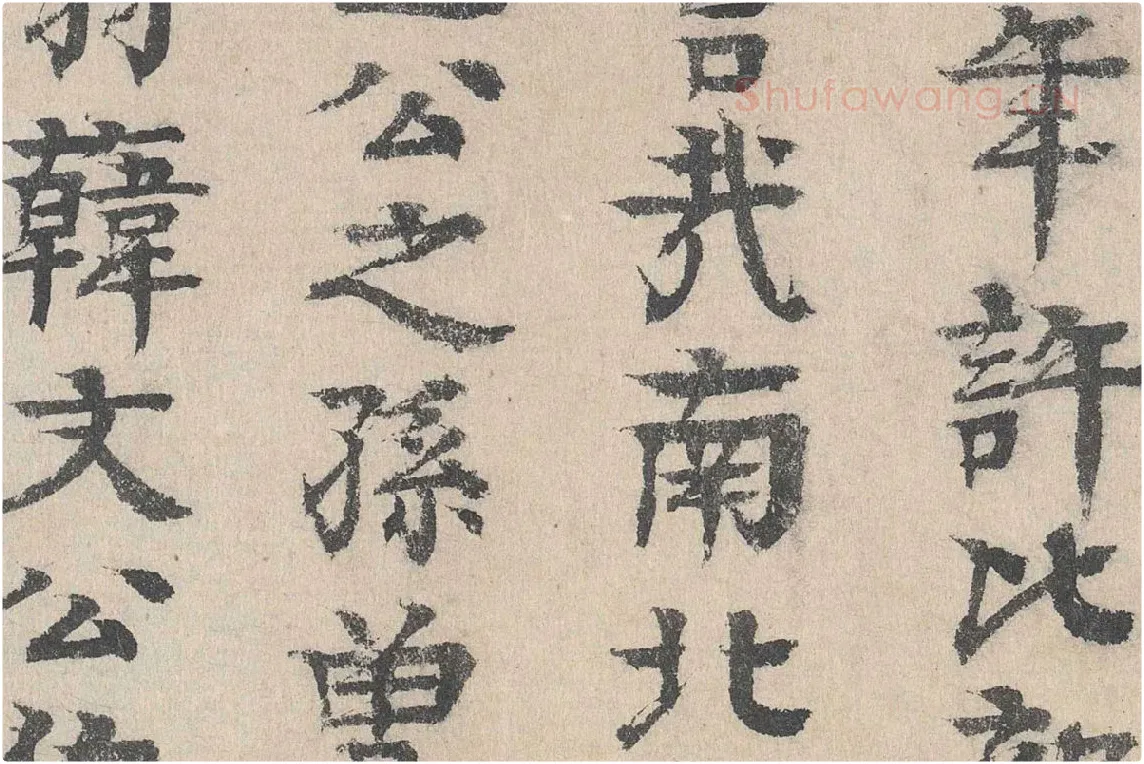 年許比
我南北
公之孫曾
韓文公
Shufawang.CN